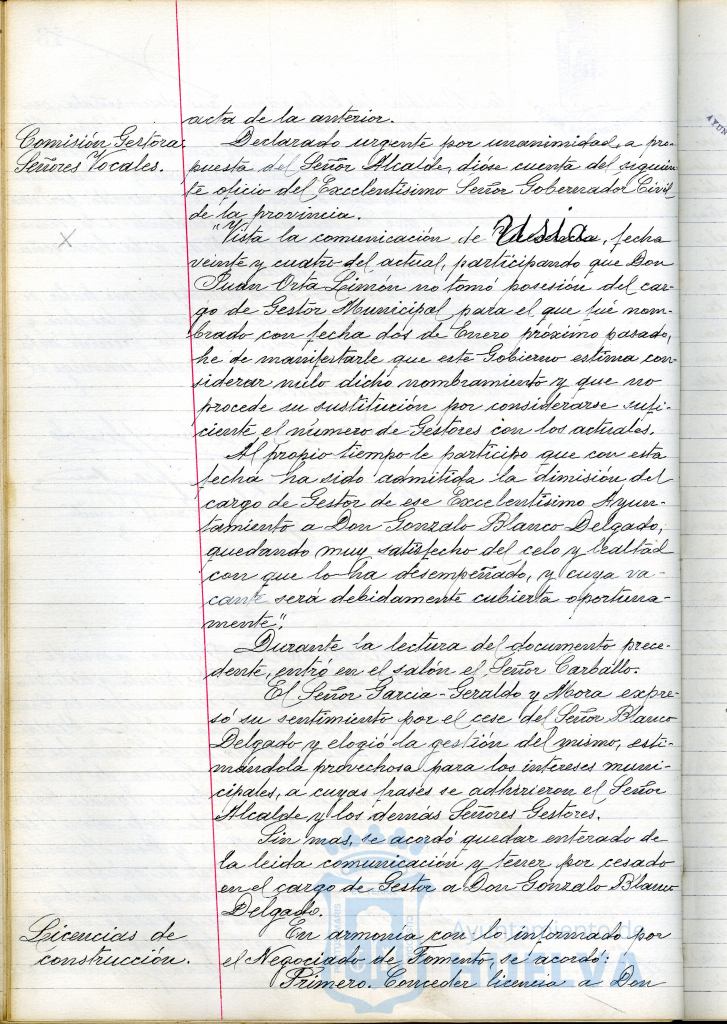 acta de la anterior.
Comisión Gestora:
Señores Vocales.
Declarado urgente por unanimidad, a pro-
puesta del Señor Alcalde, dióse cuenta del siguien-
te oficio del Excelentísimo Señor Gobernador Civil
de la provincia.
"Vista la comunicación de Usia, fecha
veinte y cuatro del actual, participando que Don
Juan Orta Limón no tomó posesión del car-
go de Gestor Municipal para el que fué nom-
brado con fecha dós de Enero próximo pasado,
he de manifestarle que este Gobierno estima con-
siderar nulo dicho nombramiento y que no
procede su sustitución por considerarse sufi-
ciente el número de Gestores con los actuales.
Al propio tiempo le participo que con esta
fecha ha sido admitida la dimisión del
cargo de Gestor de ese Excelentísimo Ayun-
tamiento a Don Gonzalo Blanco Delgado,
quedando muy satisfecho del celo y lealtad
con que lo ha desempeñado, y cuya va-
cante será debidamente cubierta oportuna-
mente".
Durante la lectura del documento prece-
dente, entró en el salón el Señor Carballo.
El Señor Garcia-Geraldo y Mora expre-
só su sentimiento por el cese del Señor Blanco
Delgado y elogió la gestión del mismo, esti-
mándola provechosa para los intereses muni-
cipales, a cuyas frases se adhirieron el Señor
Alcalde y los demás Señores Gestores.
Sin mas, se acordó quedar enterado de
la leida comunicación y tener por cesado
en el cargo de Gestor a Don Gonzalo Blanco
Delgado.
Licencias de
construcción.
En armonía con lo informado por
el Negociado de Fomento, se acordó:
Primero. Conceder licencia a Don
Ayuntamiento de
HUELVA